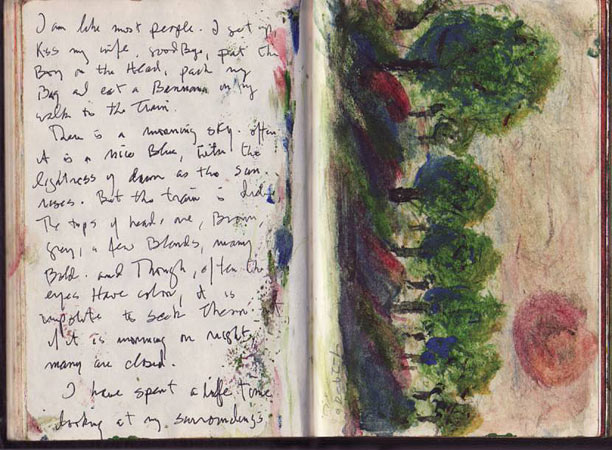 I am like most people. I get up
Kiss my wife goodbye, pat the
Boy on the Head, pack my
Bag and eat a Bannana on my
walk to the Train.
There is a morning sky. often
it is a nice Blue, with the
lightness of dawn as the sun
rises. But the train is
The tops of heads are, Brown
Gray, a few Blonds, many
Bald. and Though, often the
eyes Have color, it is
impolite to seek them.
if it is morning or night,
many are closed.
I have spent a life time
looking at my surroundings